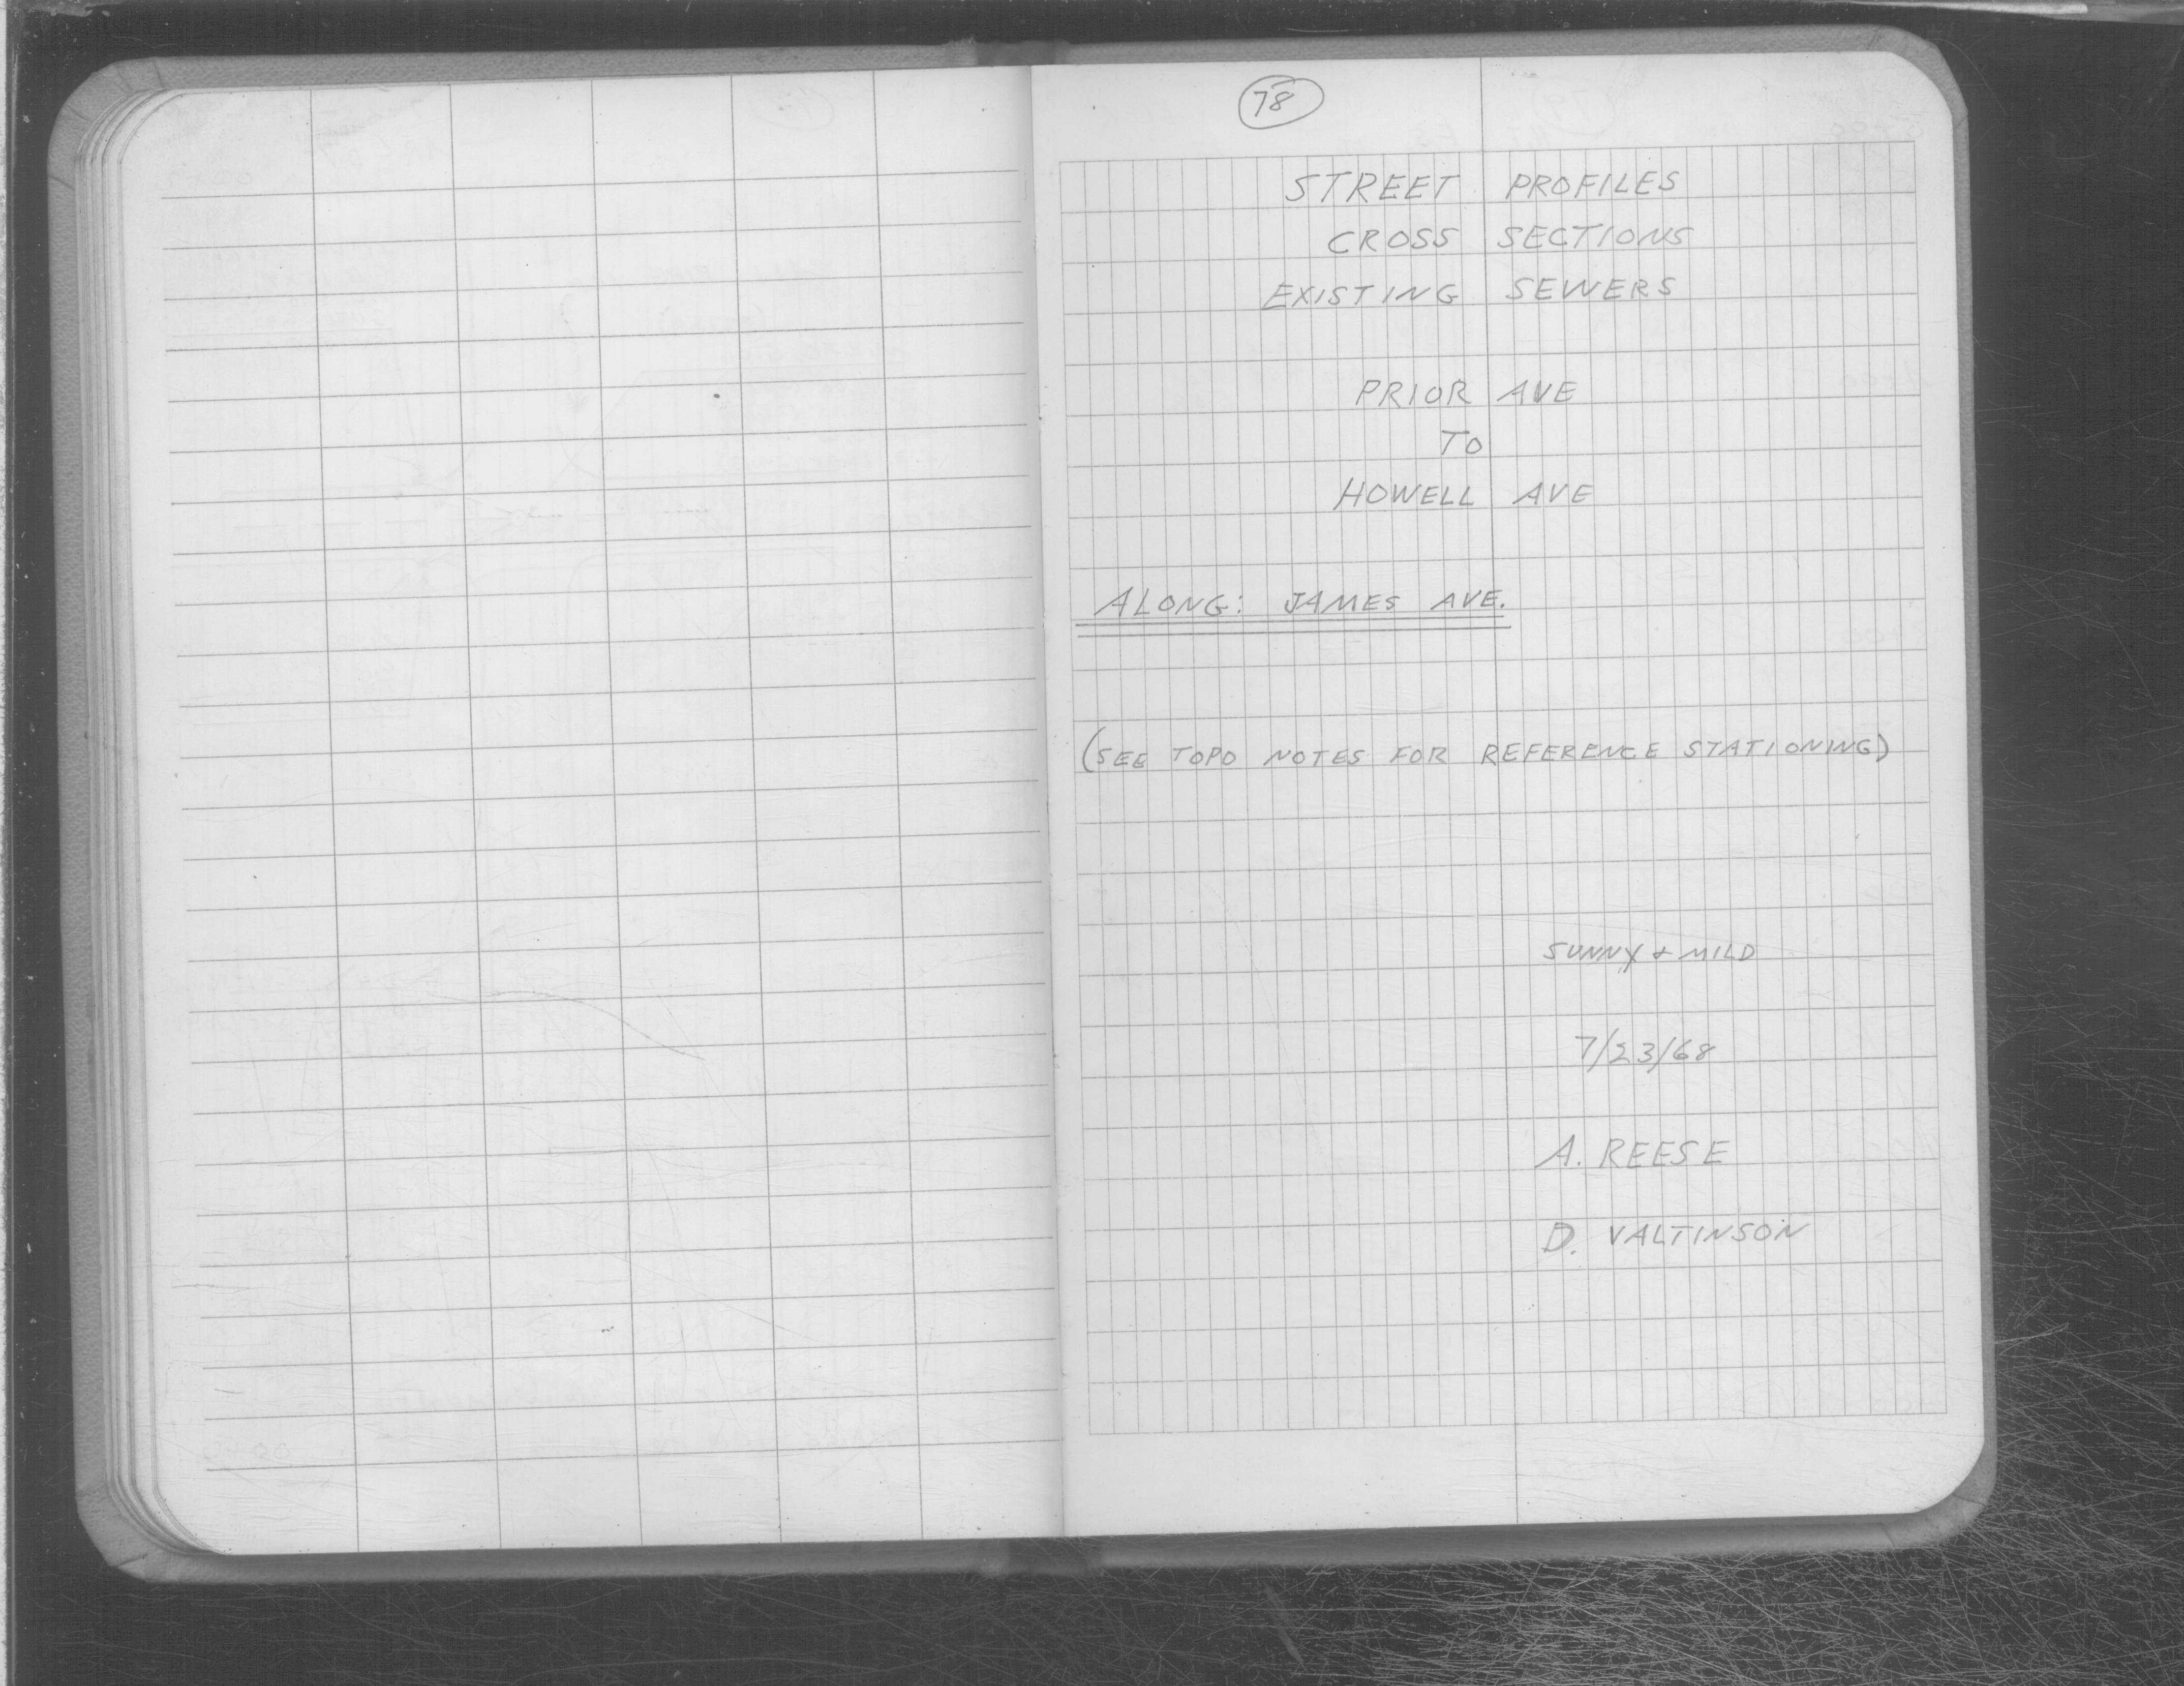 78
STREET PROFILES
CROSS SECTIONS
EXISTING SEWERS
PRIOR AVE
TO
HOWELL AVE
ALONG: JAMES AVE.
(SEE TOPO NOTES FOR REFERENCE STATIONING)
SUNNY + MILD
7/23/68
A. REESE
D. VALTINSON